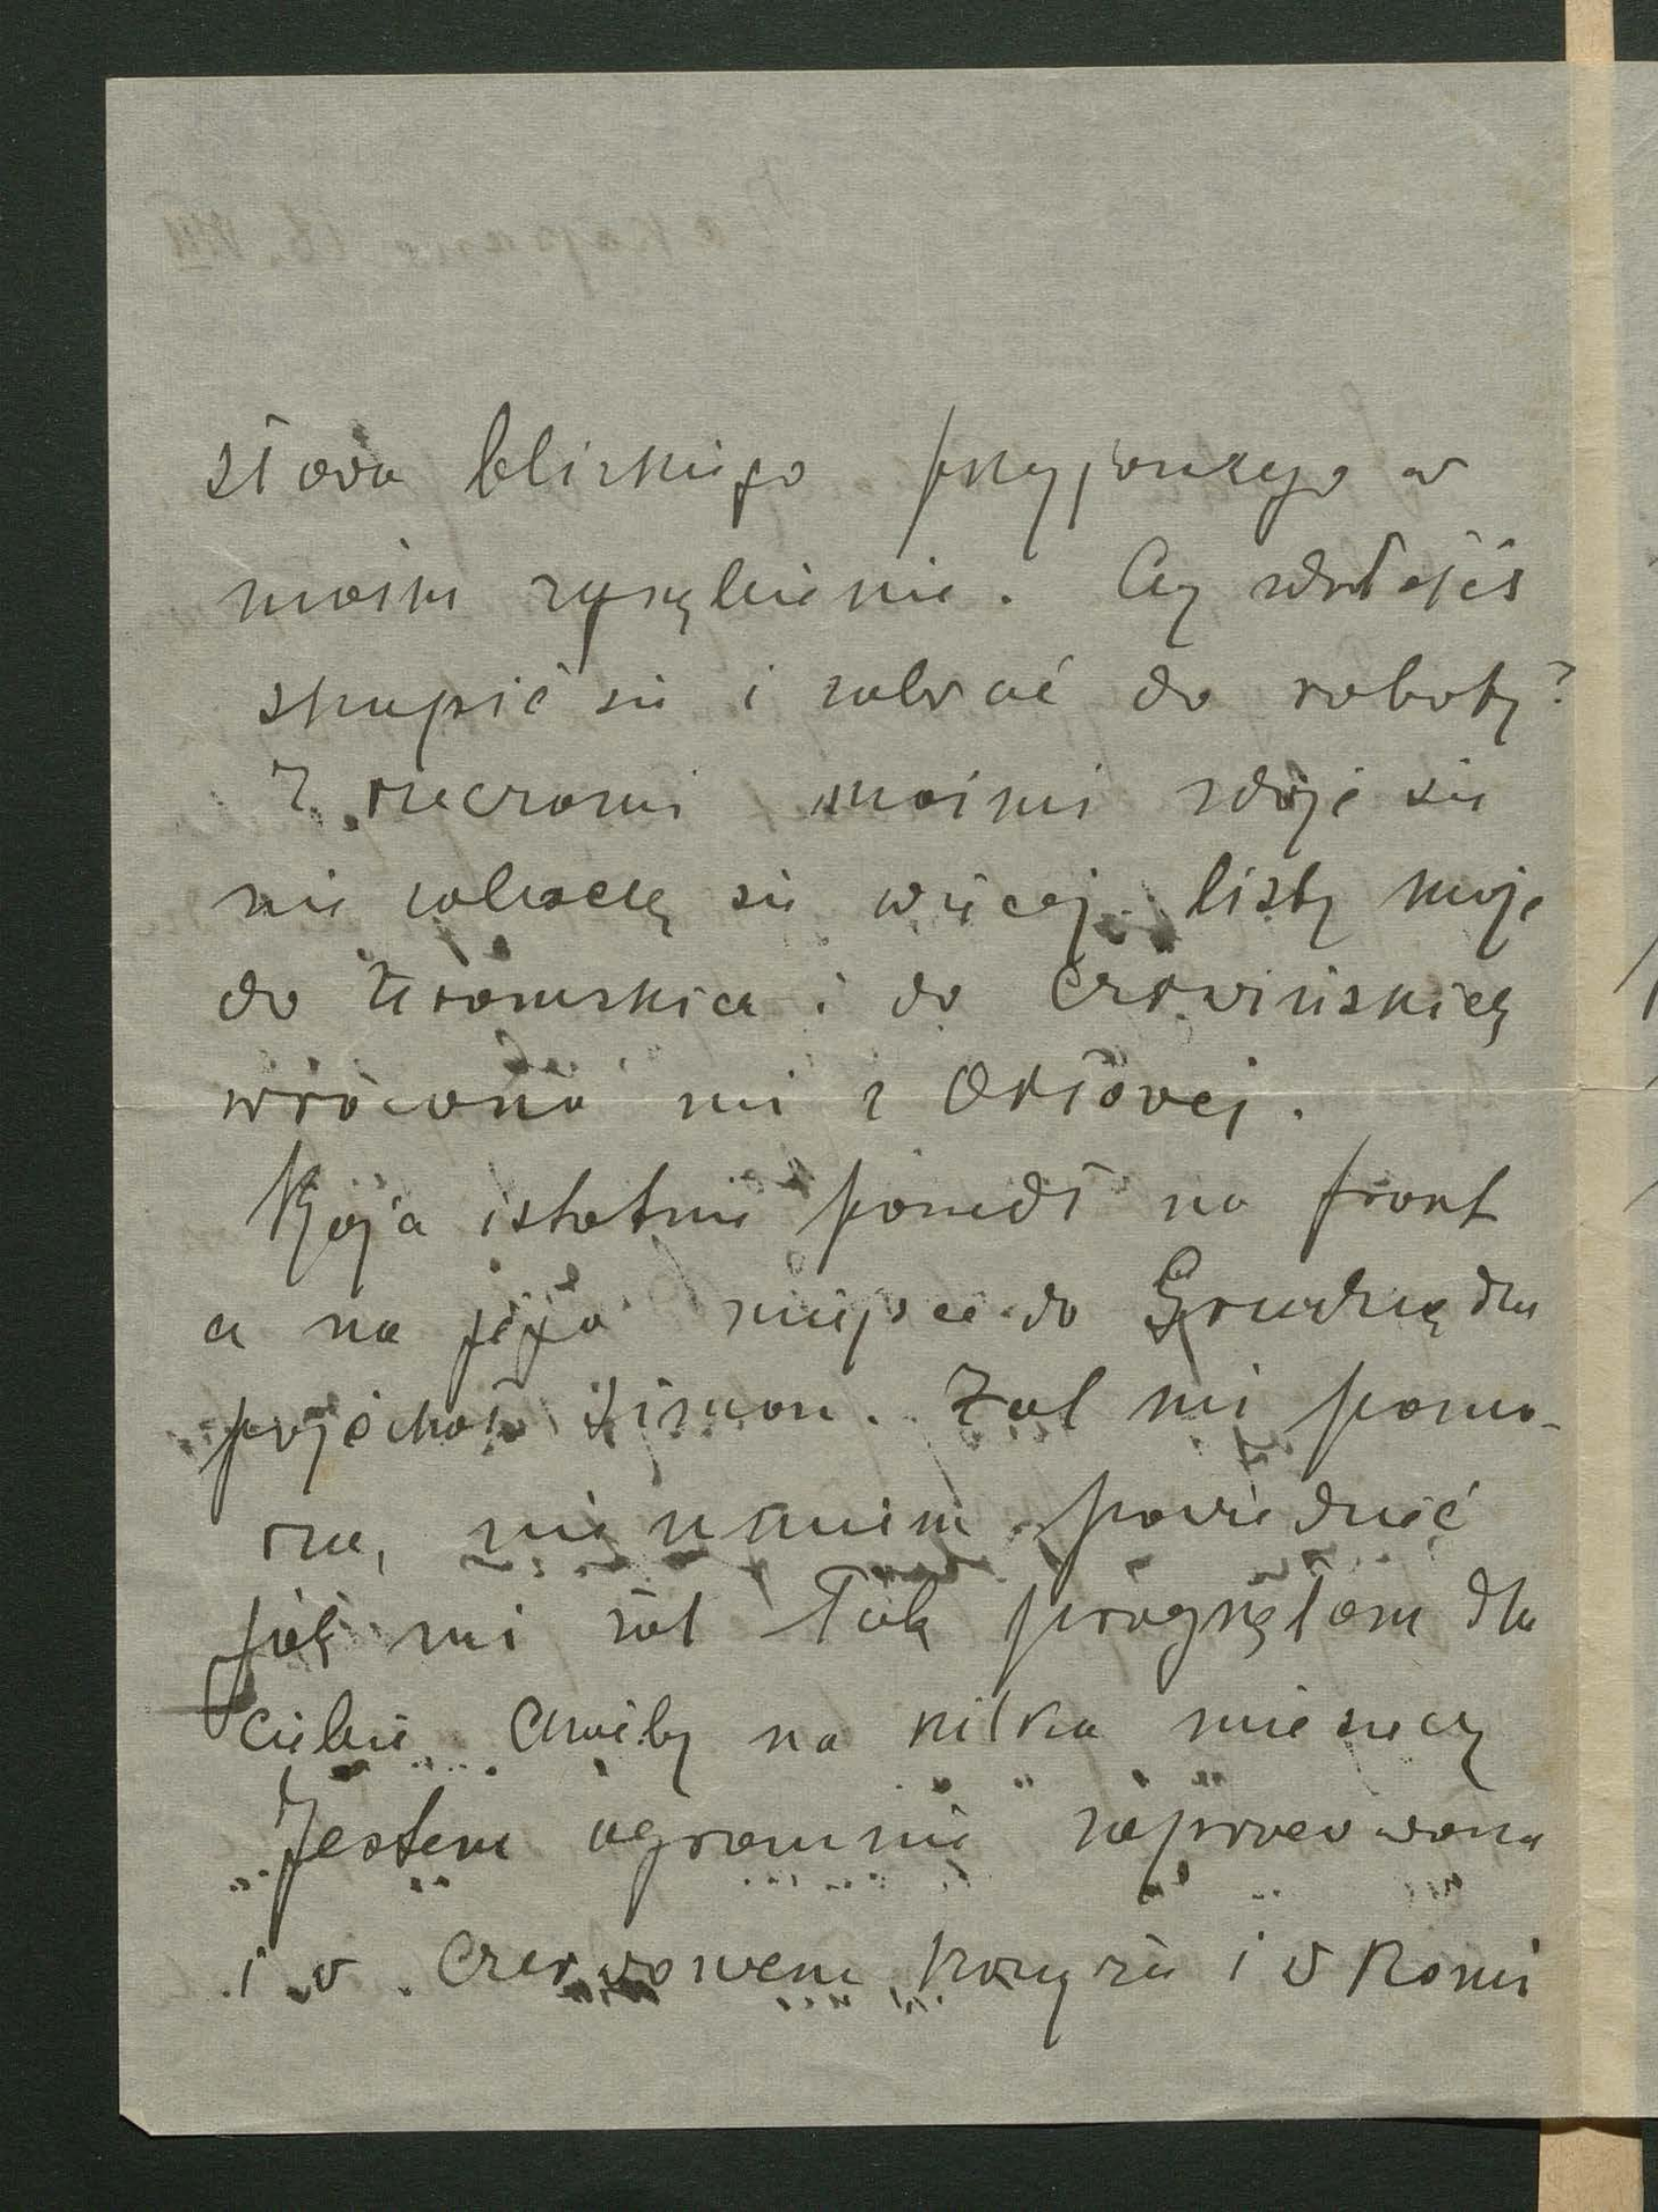 słowa bliskiego przyjaznego w
moim zagębienie. Czy zdołałeś
skupić się i zabrać do roboty?
Z rzeczami moimi zdaje się
nie zobaczę się więcej. listy moje
do Żeromskiea i do Czerwińskieg
wrócono mi z Orłowej.
Kjoja istotnie poszedł na front
a na jego miejsce do Grudziądza
przyjechał Simon. Żal mi pomo-
rza, nie umiem powiedzieć
jak mi żal Tak pragnęłam dla
ciebie choćby na kilka miesięcy
Jestem ogromnie zapracowana
i w Czerwonem Krzyżu i w Komi